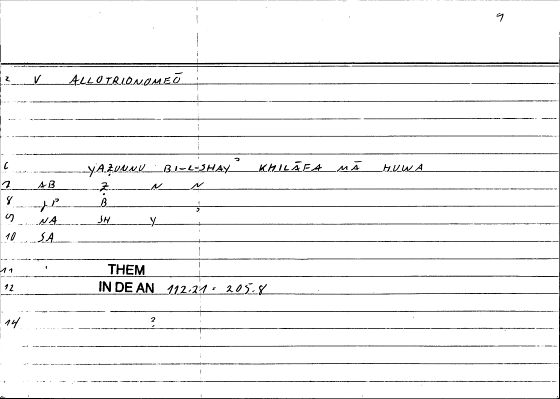 9
2 V ALLOTRIONOMEŌ
6 YAẒUNNU BI-L-SHAYʾ KHILĀFA MĀ HUWA
7 AB Ẓ N N
8 P B
9 NA SH Y ʾ
10 SA
11 THEM
12 IN DE AN 112.21 = 205.8
14 ?